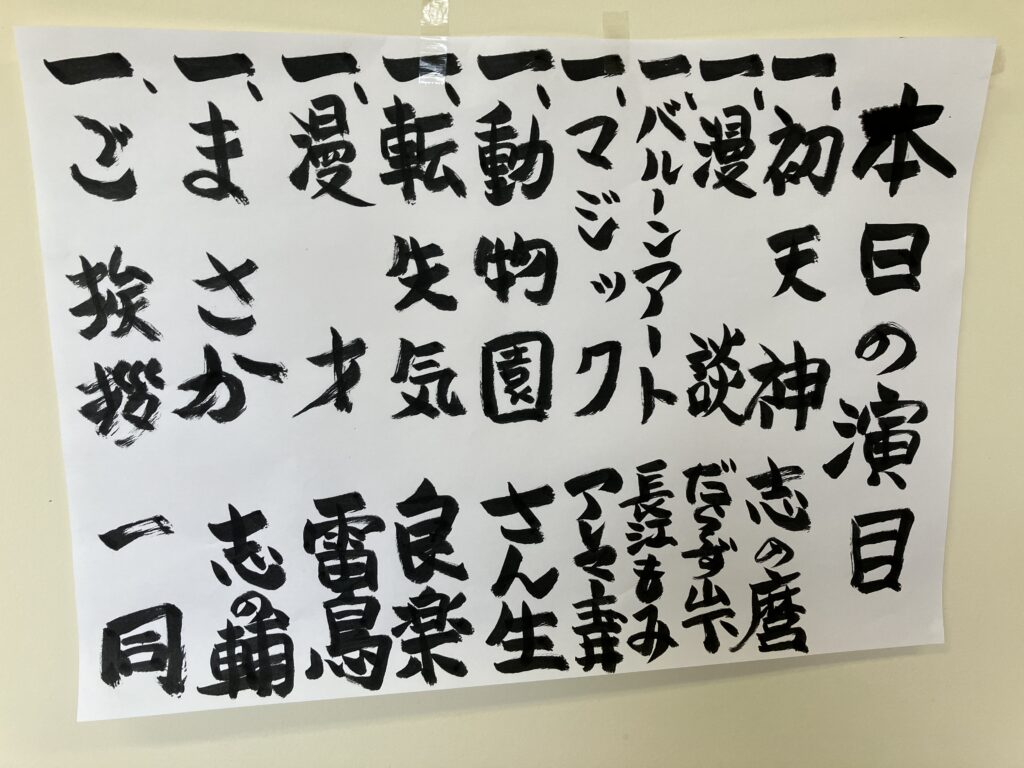 本日の演目
一、初天神 志の麿
一、漫談 山下
一、バルーンアート 長江もみ
一、マジック
一、動物園 さん生
一、転失気 良楽
一、漫才 雷鳥
一、まさか 志の輔
一、ご挨拶 一同